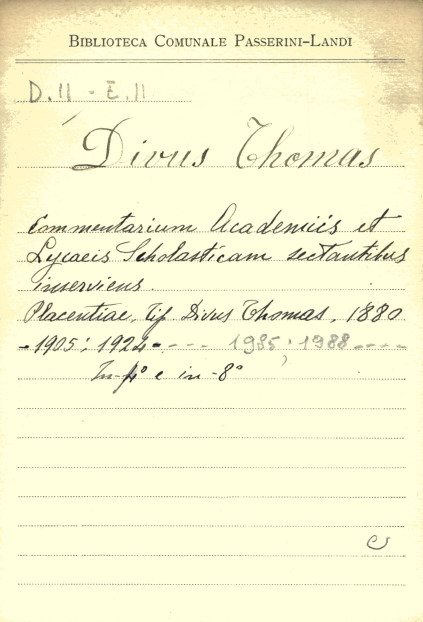 BIBLIOTECA COMUNALE PASSERINI-LANDI
D.11 - E.11
Divus Thomas
Commentarium Academiis et
Lycaeis Scholasticam sectantibus
inserviens.
Placentiae, Tif. Divus Thomas, 1880
-1905; 1924- - - - 1985; 1988 - - - -
In-4° e in-8°